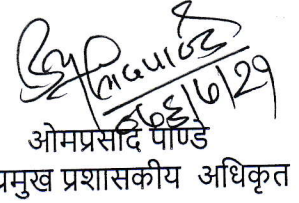 ०७६/७/२१
ओमप्रसाद पाण्डे
प्रमुख प्रशासकीय अधिकृत